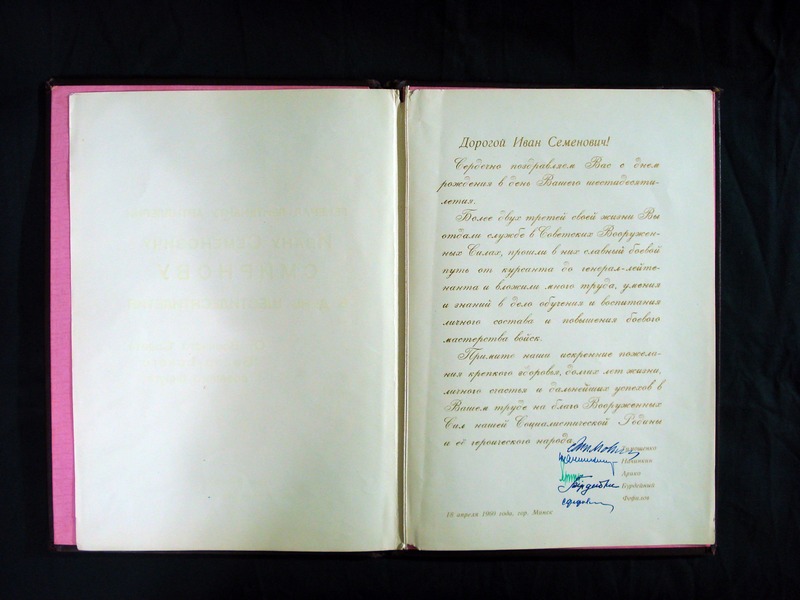 Дорогой Иван Семенович!
Сердечно поздравляем Вас с днем
рождения в день Вашего шестидесяти-
летия.
Более двух третей своей жизни Вы
отдали службе в Советских Вооружен-
ных Силах, прошли в них славный боевой
путь от курсанта до генерал-лейте-
нанта и вложили много труда, умения
и знаний в дело обучения и воспитания
личного состава и повышения боевого
мастерства войск.
Примите наши искренние пожела-
ния крепкого здоровья, долгих лет жизни,
личного счастья и дальнейших успехов в
Вашем труде на благо Вооруженных
Сил нашей Социалистической Родины
и её героического народа.
Тимошенко
Арико
Бордейник
18 апреля 1960 года, гор. Минск